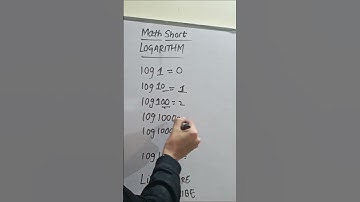 Math Short
LOGARITHM
log 1 = 0
log 10 = 1
log 100 = 2
log 1000=
log 1000
log 1